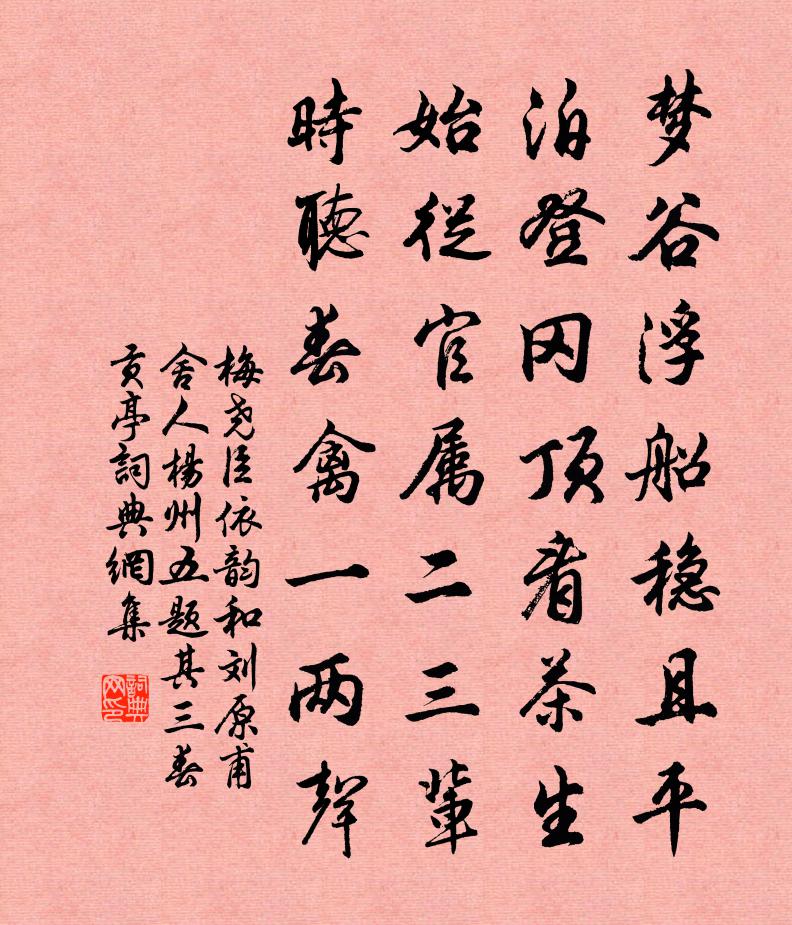 梦谷浮船稳且平
泊登冈顶看茶生
始從官属二三輩
時聽春禽一两聲
梅尧臣依韵和刘原甫
舍人楊州五题其三春
贡亭詞典網集
詞典网印